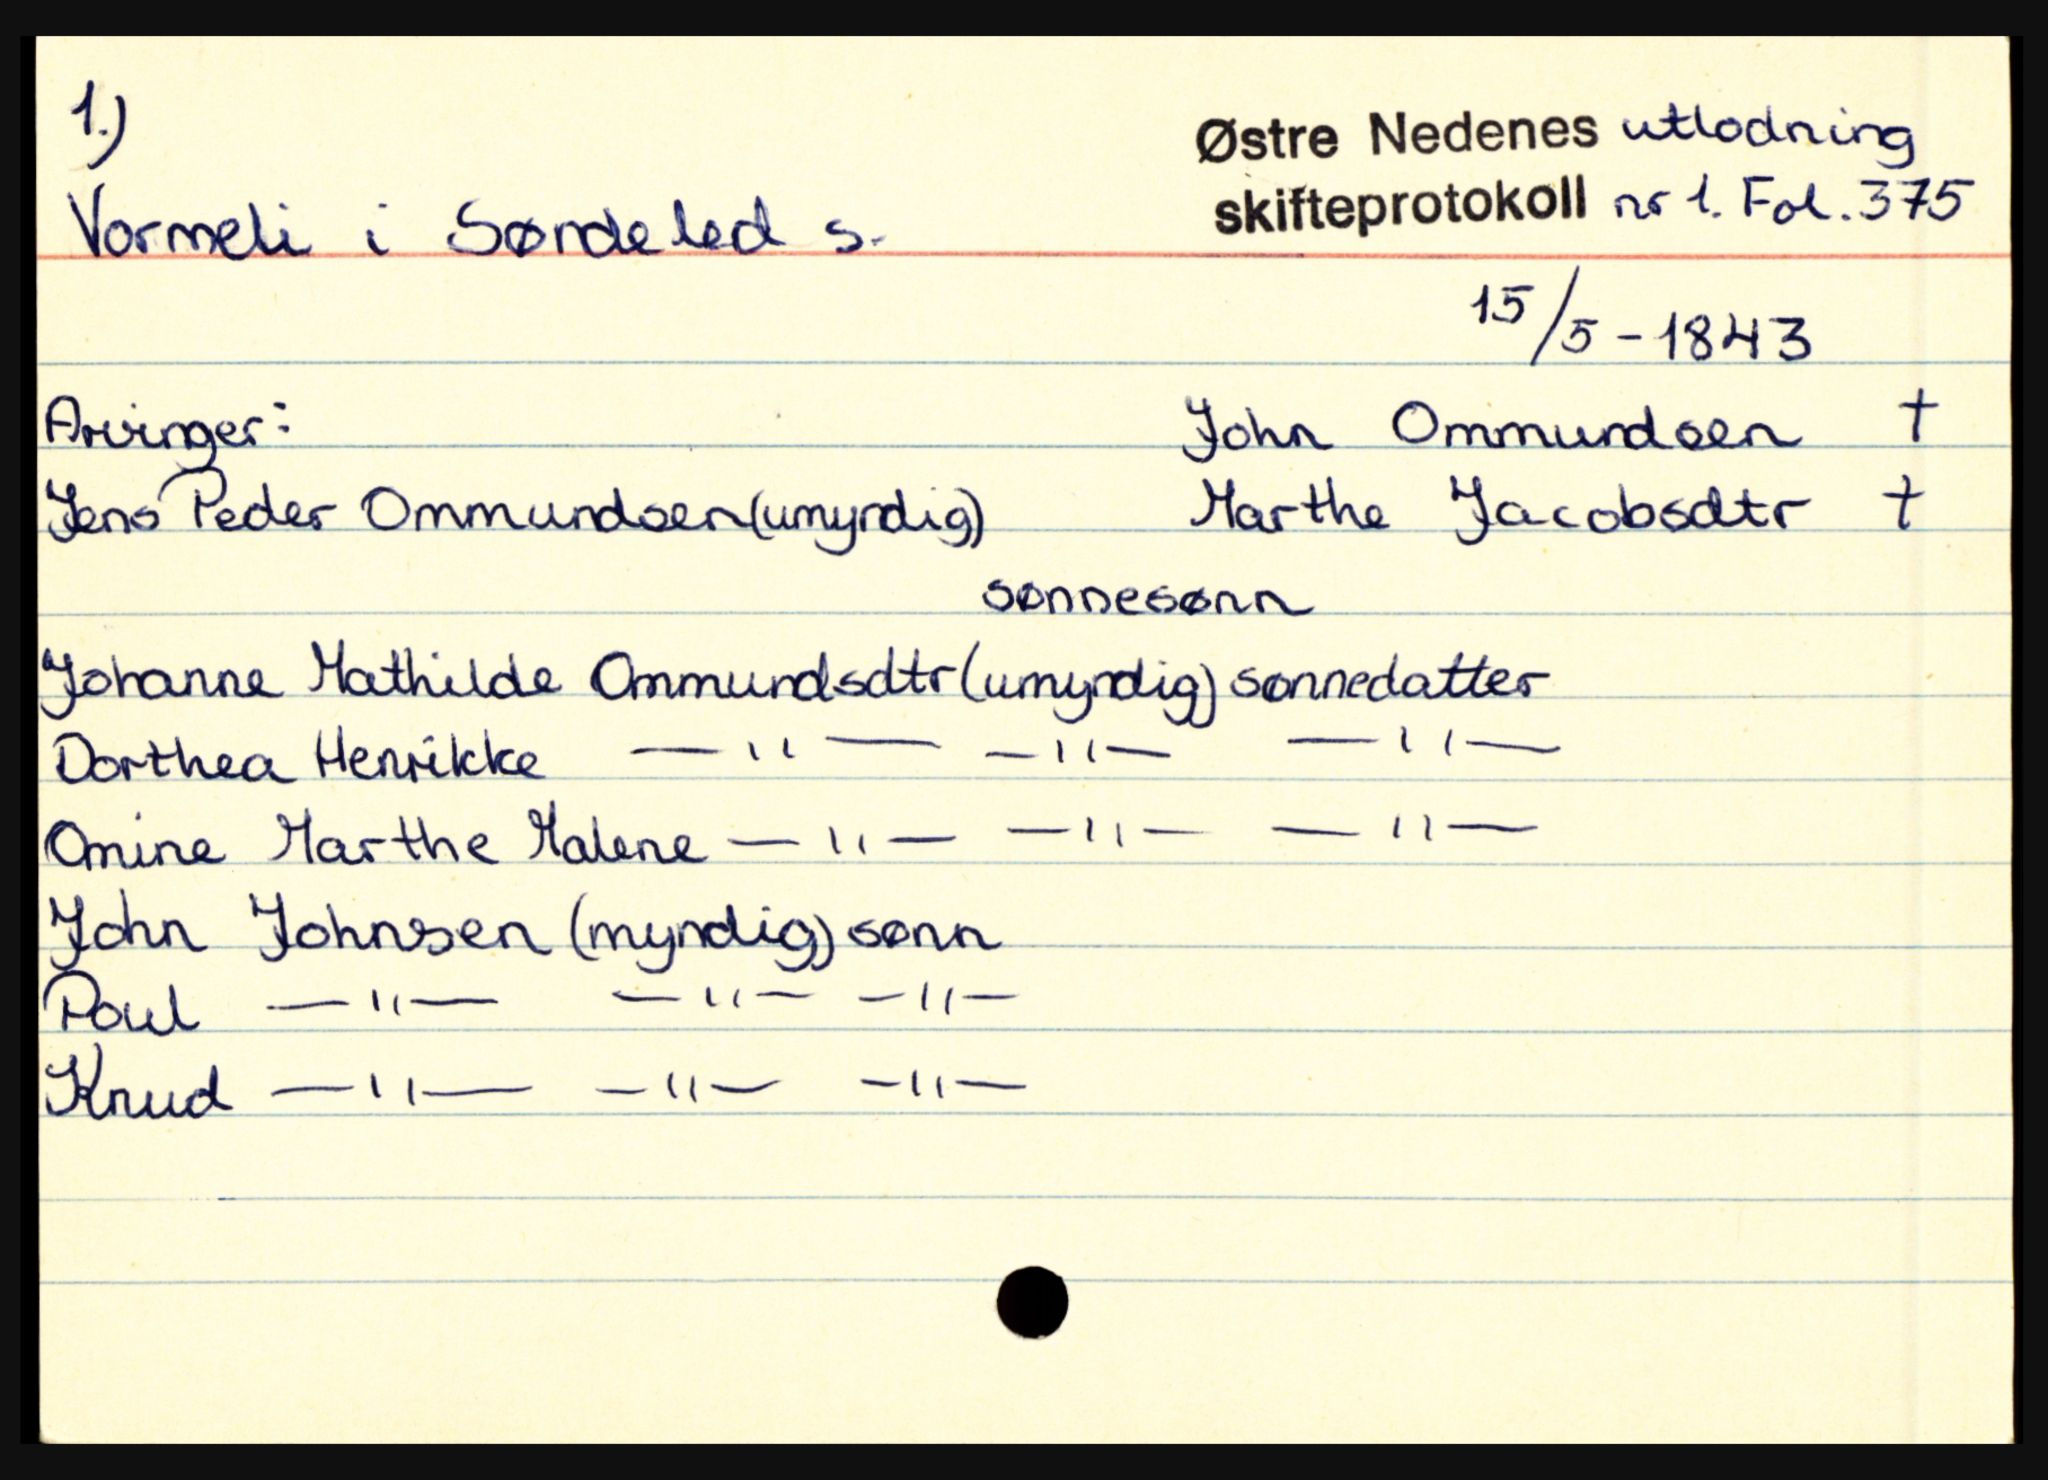 1.)
Østre Nedenes utlodning
Vormeli i Søndeled s. skifteprotokoll nr 1. Fol. 375
15/5 - 1843
Arvinger: John Ommundsen †
Jens Peder Ommundsen (umyndig) Marthe Jacobsdtr †
sønnesønn
Johanne Mathilde Ommundsdtr (umyndig) sønnedatter
Dorthea Henrikke —"— —"— —"—
Omine Marthe Malene —"— —"— —"—
John Johnsen (myndig) sønn
Poul —"— —"— —"—
Knud —"— —"— —"—